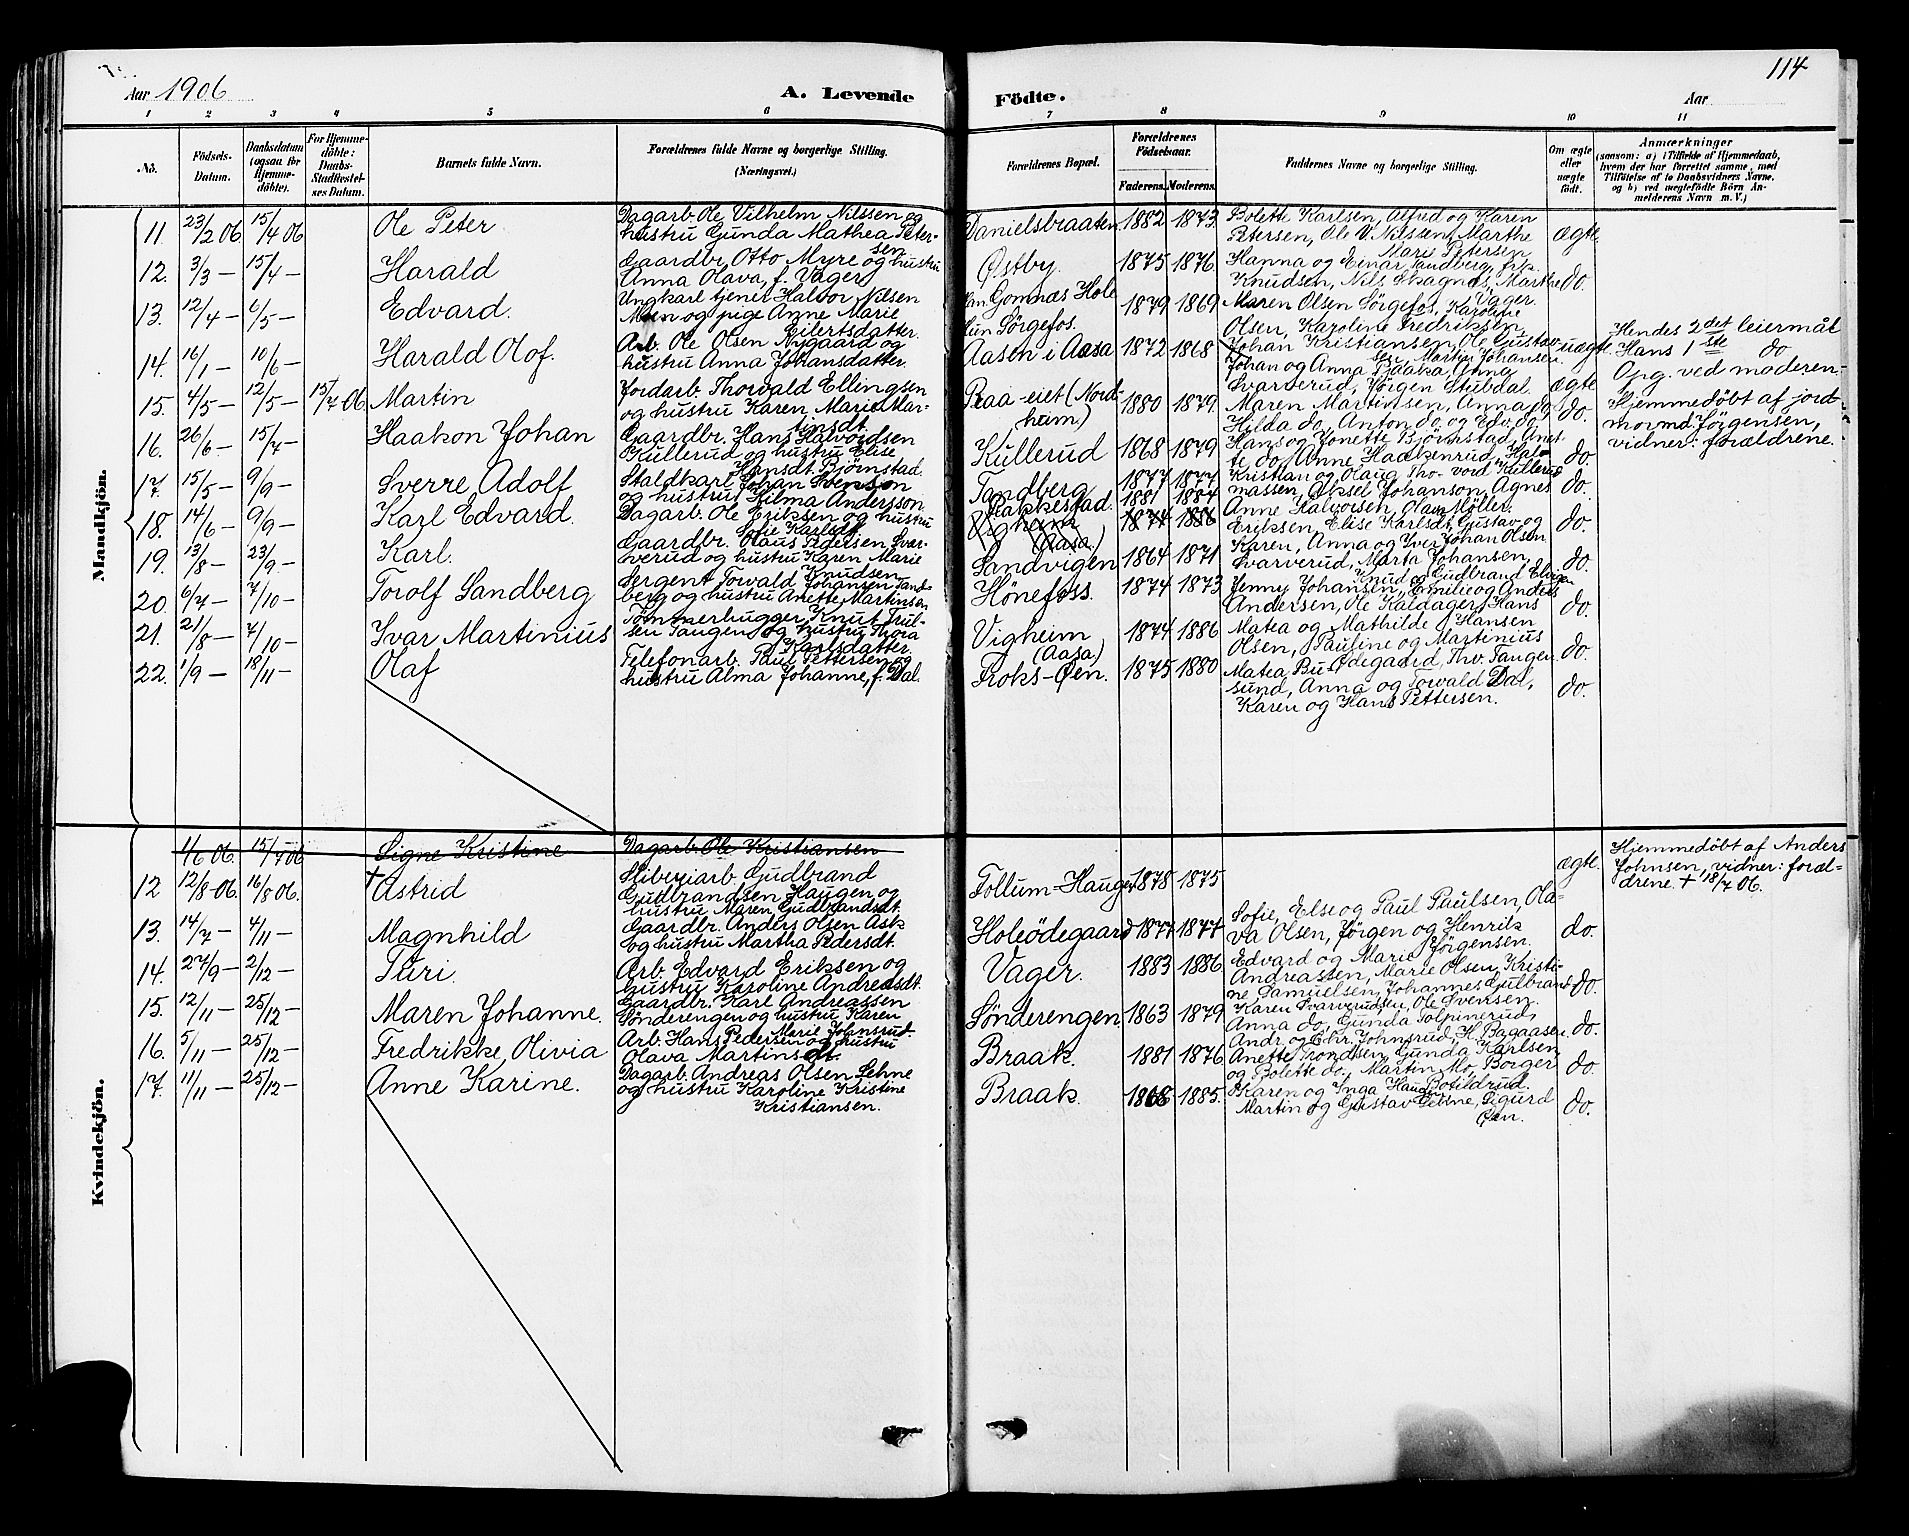 114
Aar 1906
A. Levende Födte.
Aar
1 2 3 4 5 6 7 8 9 10 11
No.
Födsels-Datum.
Daabsdatum (ogsaa for Hjemmedöbte).
For Hjemmedöbte: Daabs-Stadfæstelses Datum.
Barnets fulde Navn.
Forældrenes fulde Navne og borgerlige Stilling. (Næringsvei.)
Forældrenes Bopæl.
Forældrenes Födselsaar.
Faderens. Moderens.
Faddernes Navne og borgerlige Stilling.
Om ægte eller uægte födt.
Anmærkninger (saasom: a) i Tilfælde af Hjemmedaab, hvem der har forrettet samme, med Tilföielse af to Daabsvidners Navne, og b) ved uægtefödte Börn Anmelderens Navn m. V.)
Mandkjön.
11. 23/2 06 15/4 06 Ole Peter
Dagarb. Ole Vilhelm Nilssen og
hustru Gunda Mathea Peter-
sen
Danielsbraaten 1882 1873
Bolette Karlsen, Alfred og Karen
Petersen, Ole V. Nilssen, Marthe
Marie Petersen
ægte
12. 3/3 — 15/4 — Harald
Gaardbr. Otto Myre og hustru
Anna Olava, f. Vager
Østby 1875 1876
Hanna og Einar Sandberg, frk.
Knudsen, Nils Skagnæs, Marthe
Vager.
do.
13. 12/4 — 6/5 — Edvard.
Ungkarl tjener Halvor Nilsen
Moen og pige Anne Marie
Eilertsdatter.
Han Gomnæs Hole
Hun Sörgefos. 1879 1869
Maren Olsen Sörgefos, Karoline
Olsen, Karoline Fredriksen,
Johan Kristiansen, Ole Gustav-
sen
uægte.
Hendes 2det leiermål
Hans 1ste do
Opg. ved moderen.
14. 16/1 — 10/6 — Harald Olof.
Arb. Ole Olsen Nygaard og
hustru Anna Johansdatter.
Aasen i Aasa 1872 1868
Martin Johansen
Johan og Anna Baaka, Anna
Svarverud, Jörgen Stubdal.
ægte
15. 4/5 — 12/5 — 15/7 06. Martin
Jordarb. Thorvald Ellingsen
og hustru Karen Marie Mar-
tinsdt.
Braa-eiet (Nord-
heim) 1880 1879.
Maren Martinsen, Anna do,
Hilda do, Anton do og Edv. do.
do.
Hjemmedöbt af jord-
mor md. Jörgensen,
vidner: forældrene.
16. 26/6 — 15/7 — Haakon Johan
Gaardbr. Hans Halvordsen
Kullerud og hustru Elise
Hansdt. Björnstad.
Kullerud 1868 1879
Hans og Jonette Björnstad, Anet-
te do, Anne Haakenrud, Hal-
vord Kullerud
do.
17. 15/5 — 9/9 — Sverre Adolf
Staldkarl Johan Svenson
og hustru Hilma Andersson.
Tandberg 1877 1877
Kristian og Olaug Tho-
massen, Aksel Johanson, Agnes
do.
18. 14/6 — 9/9 — Karl Edvard.
Dagarb. Ole Eriksen og hustru
Sofie Karlsdt.
Rakkestad. 1881 1884
Vigheim (Aasa) 1874 1886
Anne Halvorsen, Olava Möller.
Eriksen, Elise Karlsdt, Gustav og
do.
19. 13/8 — 23/9 — Karl.
Gaardbr. Olaus Pedersen Svar-
verud og hustru Karen Marie
Knudsen.
Sandvigen 1864 1871
Karen, Anna og Iver Johan Olsen
Svarverud, Marta Johansen,
Knud og Gudbrand Elvigen
do.
20. 6/4 — 7/10 — Torolf Sandberg
Sergent Torvald Johansen Sand-
berg og hustru Anette Martinsen
Hönefoss. 1874 1873
Jenny Johansen, Emilie og Anders
Andersen, Ole Kaldager, Hans
do.
21. 21/8 — 7/10 — Ivar Martinius
Tömmerhugger Knut Trul-
sen Tangen og hustru Thora
Karlsdatter.
Vigheim
(Aasa) 1874 1886
Matea og Mathilde Hansen
Olsen, Pauline og Martinius
Ødegaard, Thv. Tangen.
do.
22. 1/9 — 18/11 — Olaf
Telefonarb. Paul Pettersen og
hustru Alma Johanne, f. Dal.
Kroks-Øen. 1875 1880
Matea
sund, Anna og Torvald Dal,
Karen og Hans Pettersen.
do.
Kvindekjön.
1/6 06. 15/7 06 Signe Kristine Dagarb. Ole Kristiansen
12 12/8-06. 16/8 06. † Astrid
Sliberiarb. Gudbrand
Gudbrandsen Haugen og
hustru Maren Gudbrandsdt.
Follum-Hauger 1878 1875
ægte.
Hjemmedöbt af Anders
Johnsen, vidner: foræl-
drene. † 18/7 06.
13. 14/7 — 4/11 — Magnhild
Gaardbr. Anders Olsen Ask
og hustru Martha Pedersdt.
Holeödegaard 1877 1877
Sofie, Else og Paul Paulsen, Ola-
va Olsen, Jörgen og Henrik
Jörgensen.
do.
14. 27/9 — 2/12 — Turi.
Arb. Edvard Eriksen og
hustru Karoline Andreasdt.
Vager. 1883 1886
Edvard og Marie
Andreassen, Marie Olsen, Kristi-
ne Samuelsen, Johannes Gulbrand-
sen, Ole Svensen.
do.
15. 12/11 — 25/12 — Maren Johanne.
Gaardbr. Karl Andreassen
Sönderengen og hustru Karen
Marie Johnsrud.
Sönderengen 1863 1879
Karen Svarverud,
Anna do, Gunda Tolpinerud,
Andr. og Chr. Johnsrud, H. Bagaasen
do.
16. 5/11 — 25/12 — Fredrikke Olivia
Arb. Hans Pedersen og hustru
Olava Martinsdt.
Braak. 1881 1876
Anette Trondsen, Gunda Karlsen
og Bolette do, Martin Mo, Borger
Botildrud.
do.
17. 11/11 — 25/12 — Anne Karine.
Dagarb. Andreas Olsen Lehne
og hustru Karoline Kristine
Kristiansen.
Braak. 1868 1885.
Karen og Inga Haug
Martin og Gustav Lehne, Sigurd
Øen.
do.